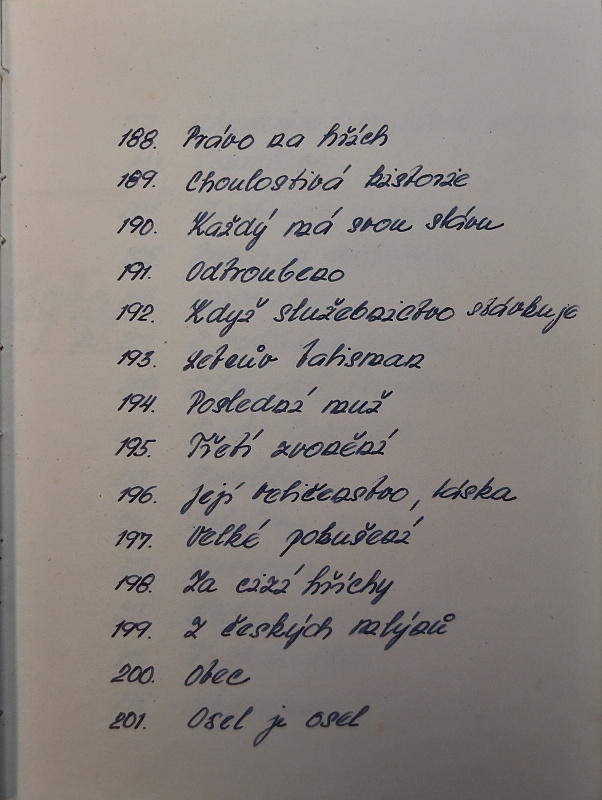 188. Právo na hřích
189. Choulostivá historie
190. Každý má svou slávu
191. Odtroubeno
192. Když služebnictvo stávkuje
193. talisman
194. Poslední muž
195. Třetí zvonění
196. Její veličenstvo, láska
197. Velké pokušení
198. Za cizí hříchy
199. Z českých mlýnů
200. Obec
201. Osel je osel